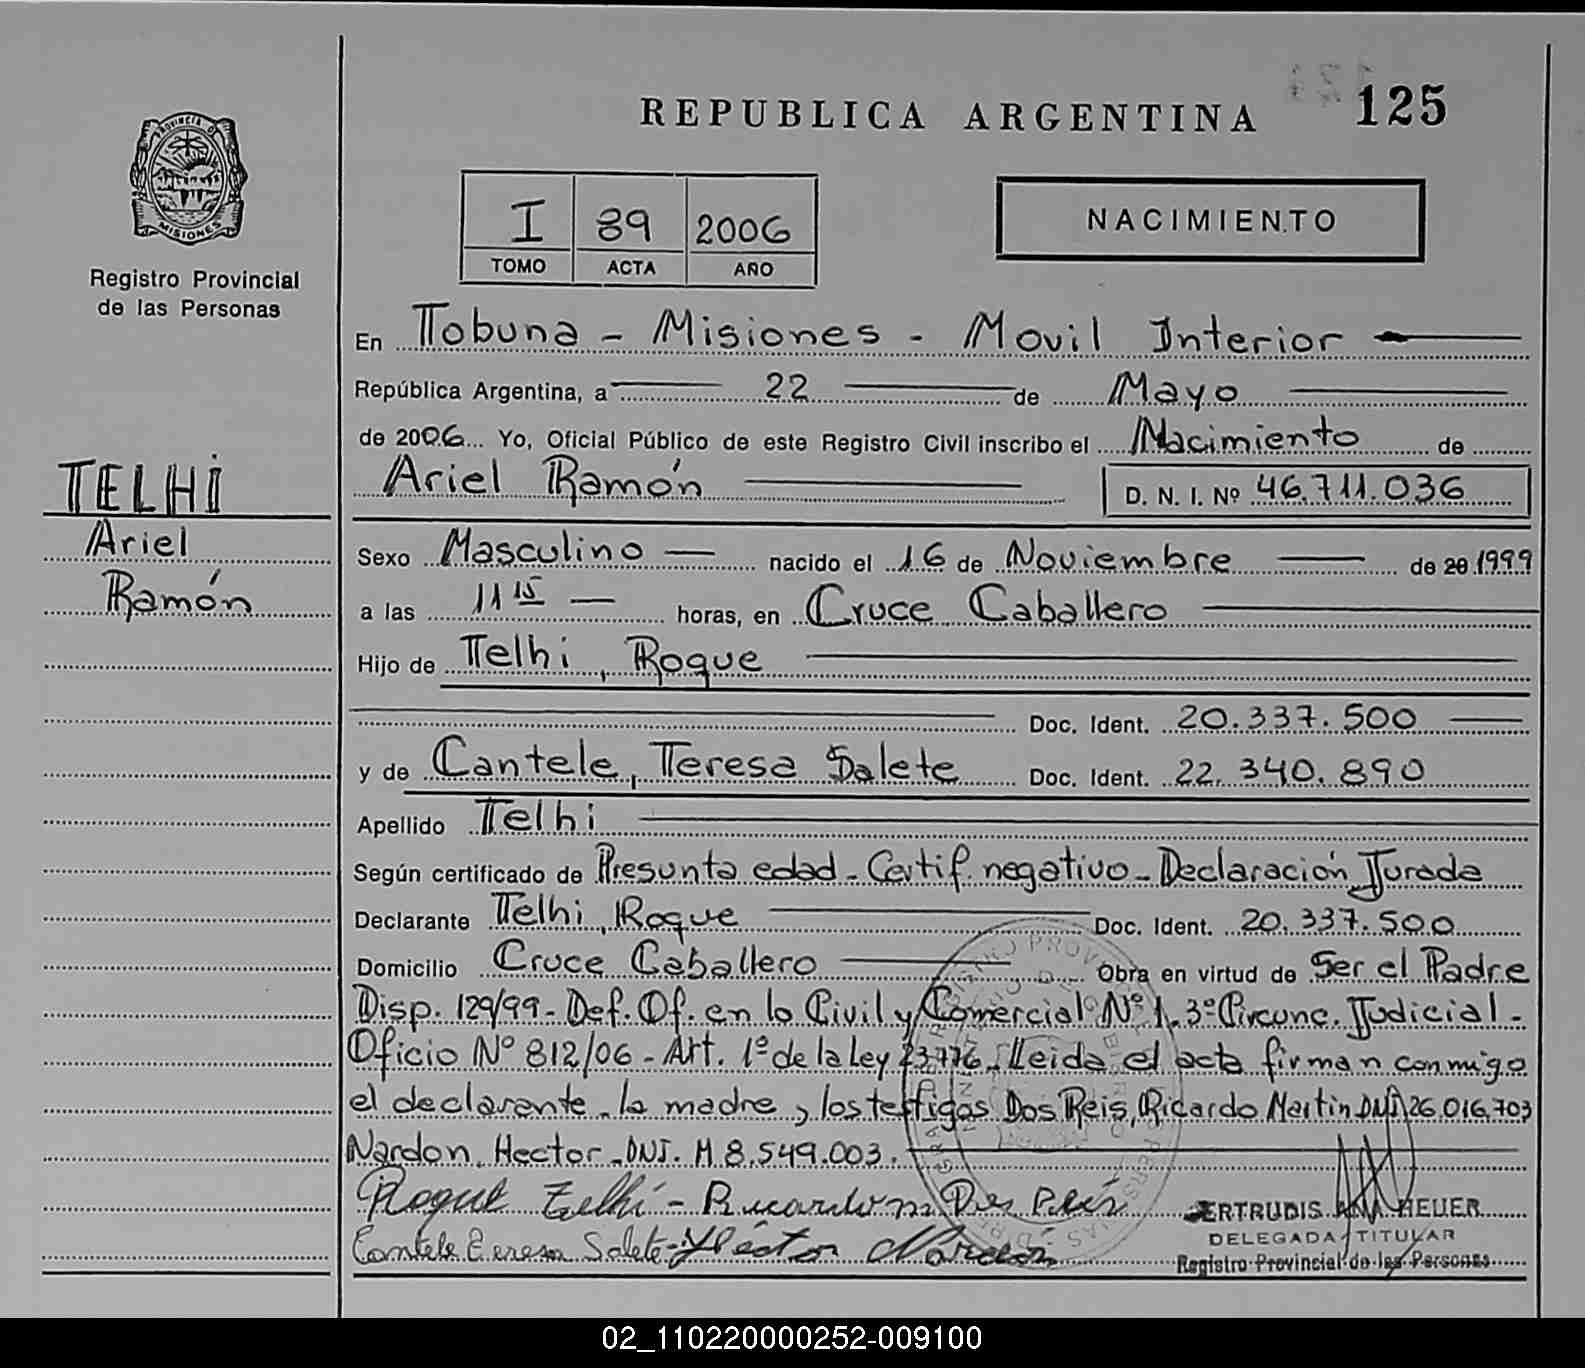 REPUBLICA ARGENTINA 125
PROVINCIA DE
MISIONES
Registro Provincial
de las Personas
I 89 2006
TOMO ACTA AÑO
NACIMIENTO
En Tobuna - Misiones - Movil Interior
República Argentina, a 22 de Mayo
de 2006 Yo, Oficial Público de este Registro Civil inscribo el Nacimiento de
Ariel Ramón D. N. I. Nº 46.711.036
TELHI
Ariel
Ramón
Sexo Masculino nacido el 16 de Noviembre de 20 1999
a las 11 15 horas, en Cruce Caballero
Hijo de Telhi, Roque
Doc. Ident. 20.337.500
y de Cantele, Teresa Salete Doc. Ident. 22.340.890
Apellido Telhi
Según certificado de Presunta edad - Certif. negativo - Declaración Jurada
Declarante Telhi, Roque Doc. Ident. 20.337.500
Domicilio Cruce Caballero Obra en virtud de Ser el Padre
Disp. 129/99 - Def. Of. en lo Civil y Comercial Nº 1. 3º Circunc. Judicial -
Oficio Nº 812/06 - Art. 1º de la Ley 23.776. Leida el acta firman conmigo
el declarante, la madre, los testigos Dos Reis, Ricardo Martin DNI 26.016.703
Nardon, Hector - DNI. M 8.549.003.
Roque Telhi - Ricardo m Dos Reis
Cantele Teresa Salete - Héctor Nardon
GERTRUDIS ANA HEUER
DELEGADA TITULAR
Registro Provincial de las Personas
02_110220000252-009100